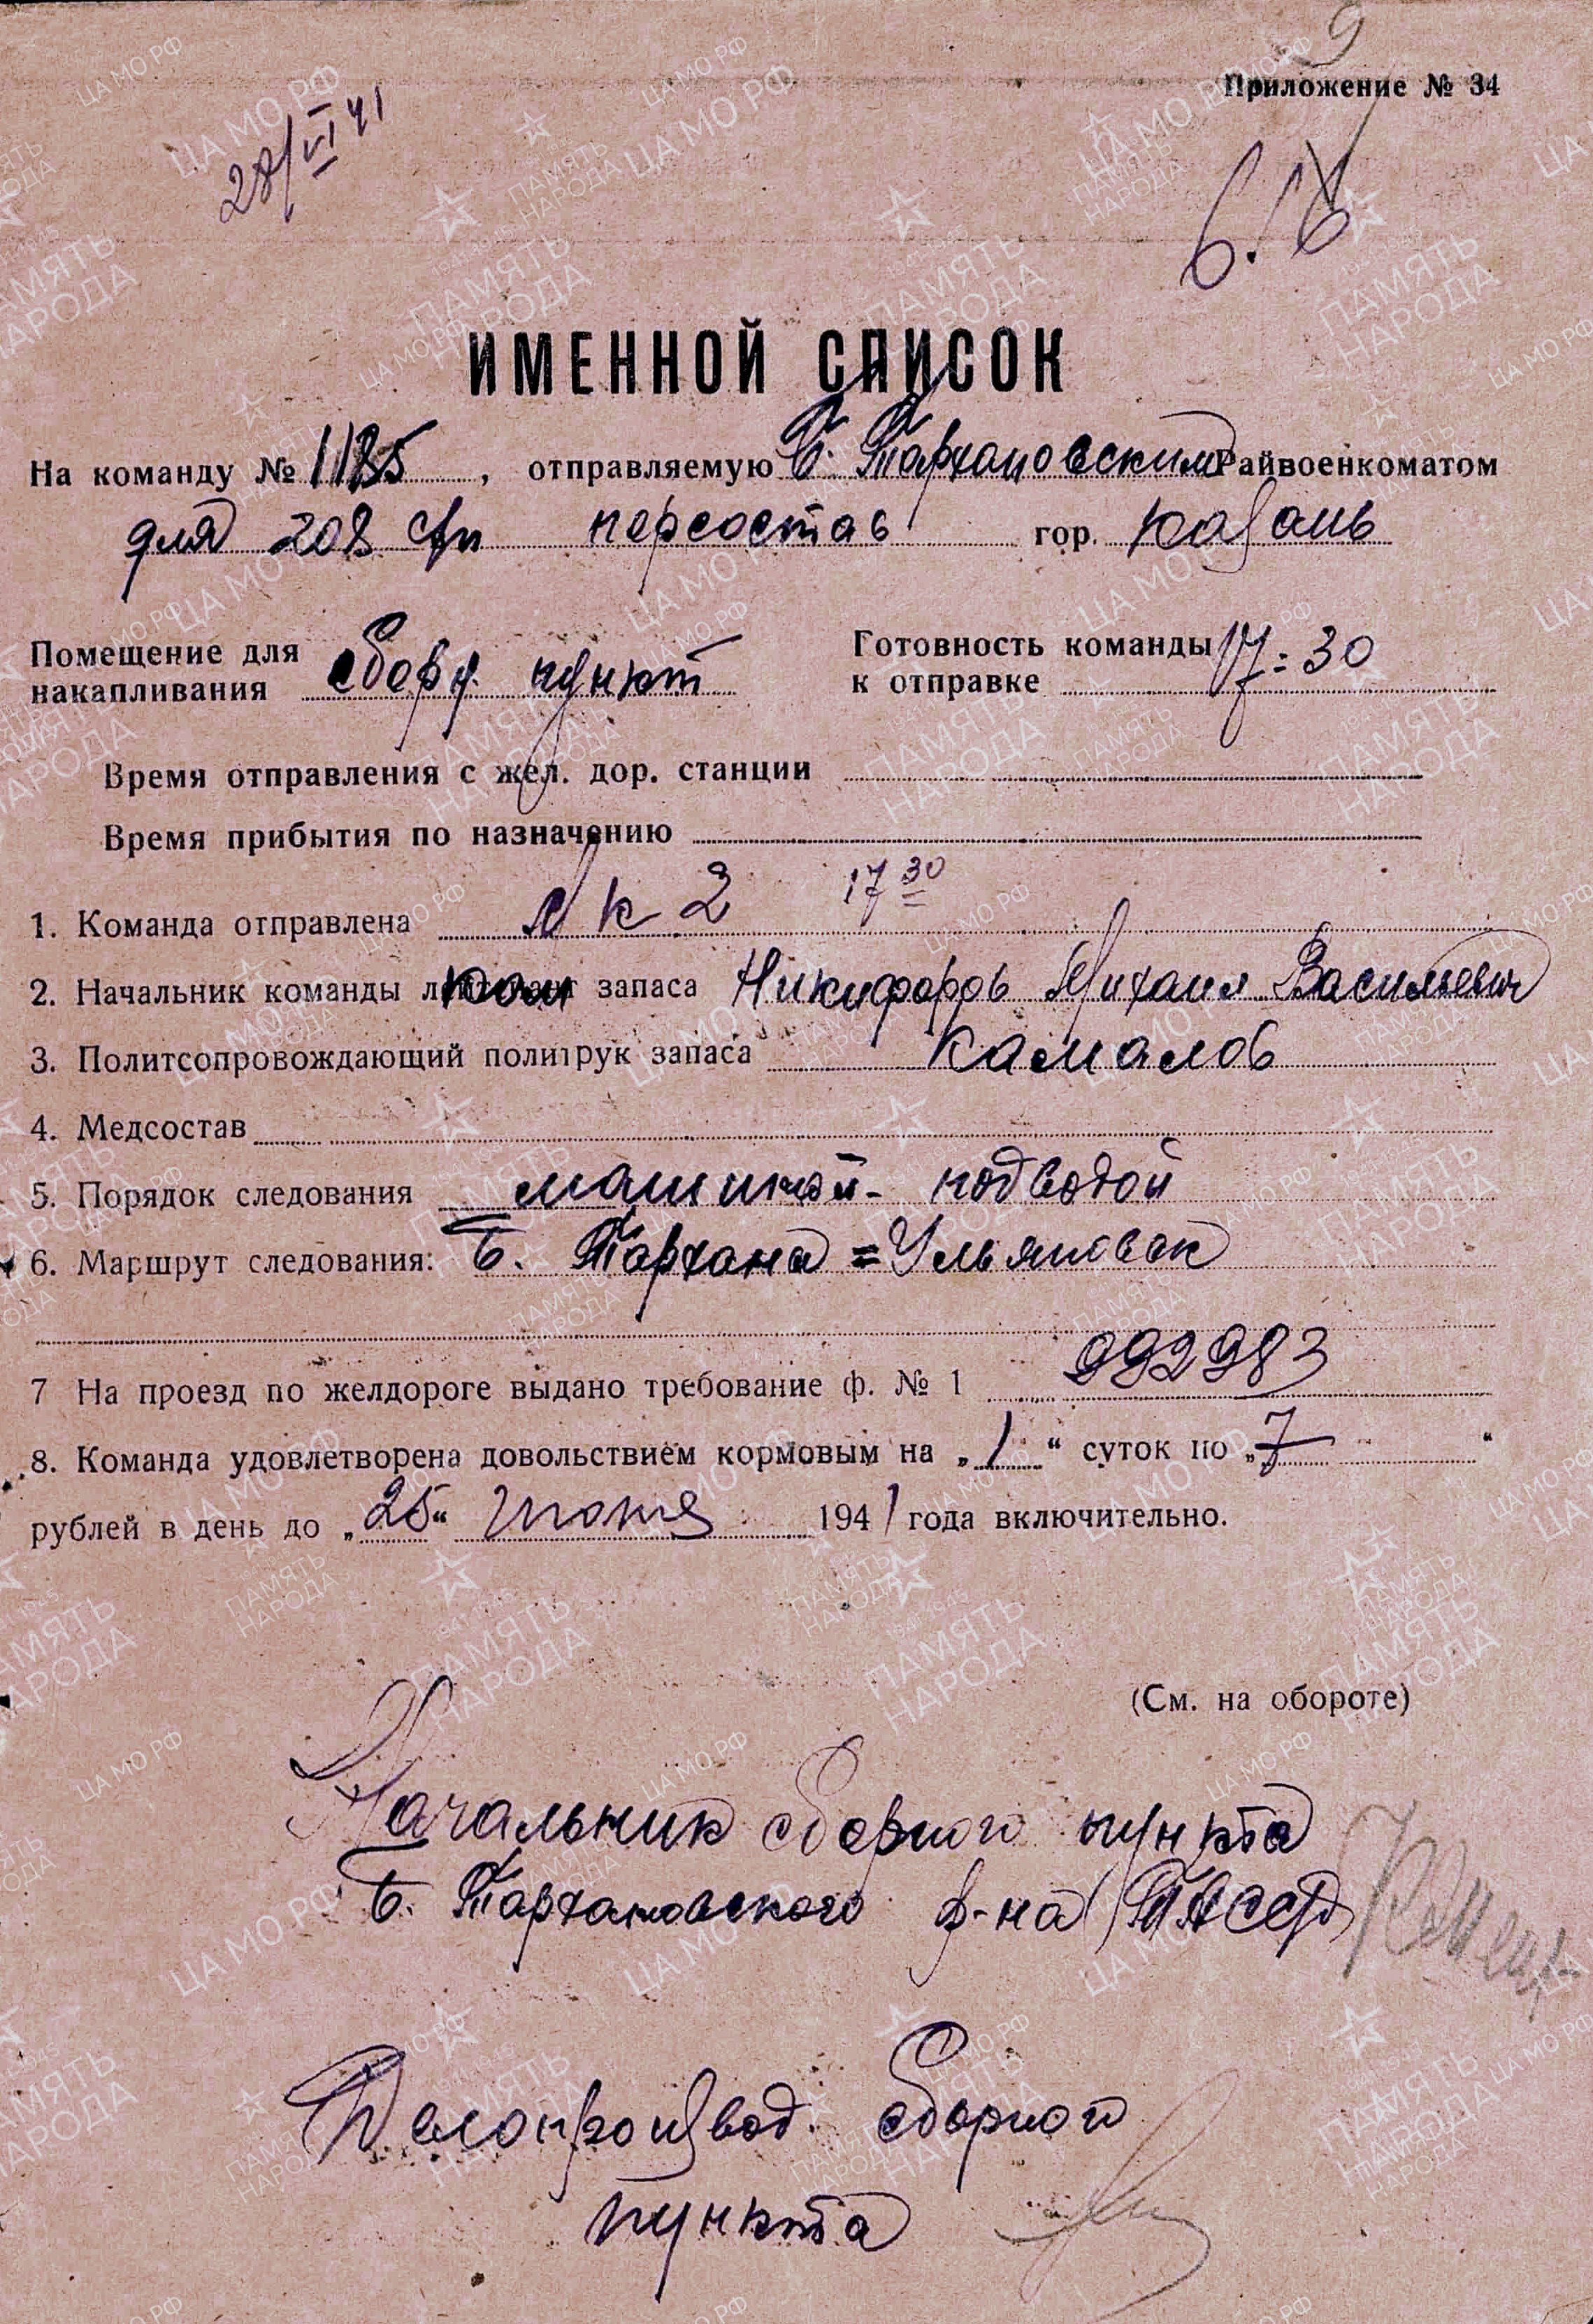 9
Приложение № 34
28/VI 41
ИМЕННОЙ СПИСОК
На команду № 1185, отправляемую Б. Тархановским Райвоенкоматом
для 208 сп персостав гор. Казань
Помещение для накапливания сборн. пункт
Готовность команды к отправке 17=30
Время отправления с жел. дор. станции
Время прибытия по назначению
1. Команда отправлена М к 2 17 30
2. Начальник команды запаса Никифоров Михаил Васильевич
3. Политсопровождающий политрук запаса Камалов
4. Медсостав
5. Порядок следования машиной - подводой
6. Маршрут следования: Б. Тархана = Ульяновск
7 На проезд по желдороге выдано требование ф. № 1 992983
8. Команда удовлетворена довольствием кормовым на „1“ суток по „7“
рублей в день до „25“ июня 1941 года включительно.
(См. на обороте)
Начальник сборного пункта
Б. Тархановского р-на ТАССР
Делопроизвод. сборного
пункта